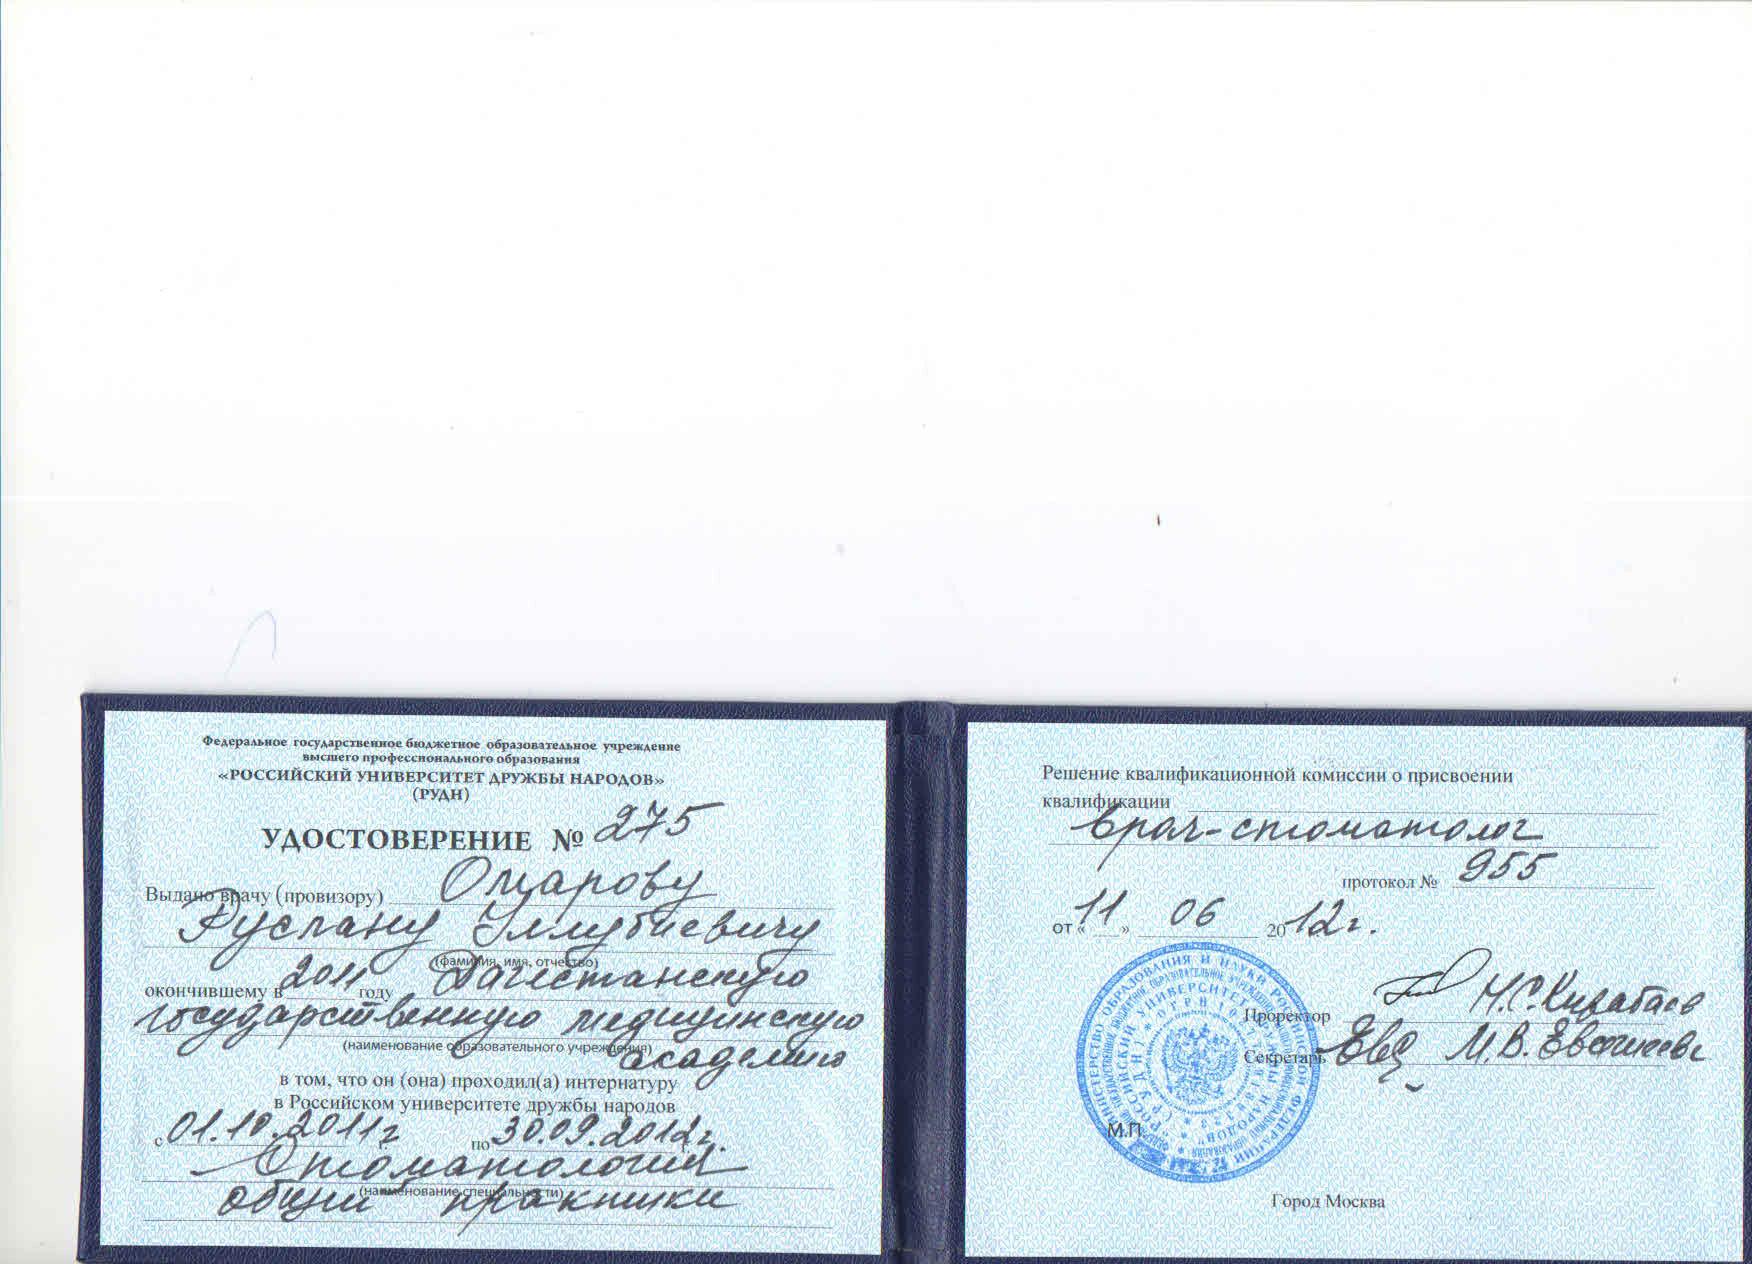 Федеральное государственное бюджетное образовательное учреждение
высшего профессионального образования
«РОССИЙСКИЙ УНИВЕРСИТЕТ ДРУЖБЫ НАРОДОВ»
(РУДН)
УДОСТОВЕРЕНИЕ № 275
Выдано врачу (провизору) Омарову
Руслану Уллубиевичу
(фамилия, имя, отчество)
окончившему в 2011 году Дагестанскую
государственную медицинскую
(наименование образовательного учреждения)
академию
в том, что он (она) проходил(а) интернатуру
в Российском университете дружбы народов
с 01.10.2011г по 30.09.2012г.
Стоматология
(наименование специальности)
общей практики
Решение квалификационной комиссии о присвоении
квалификации
врач-стоматолог
протокол № 955
от «11» 06 2012г.
Проректор Н.С.Кирабаев
Секретарь М.В.
М.П.
Город Москва